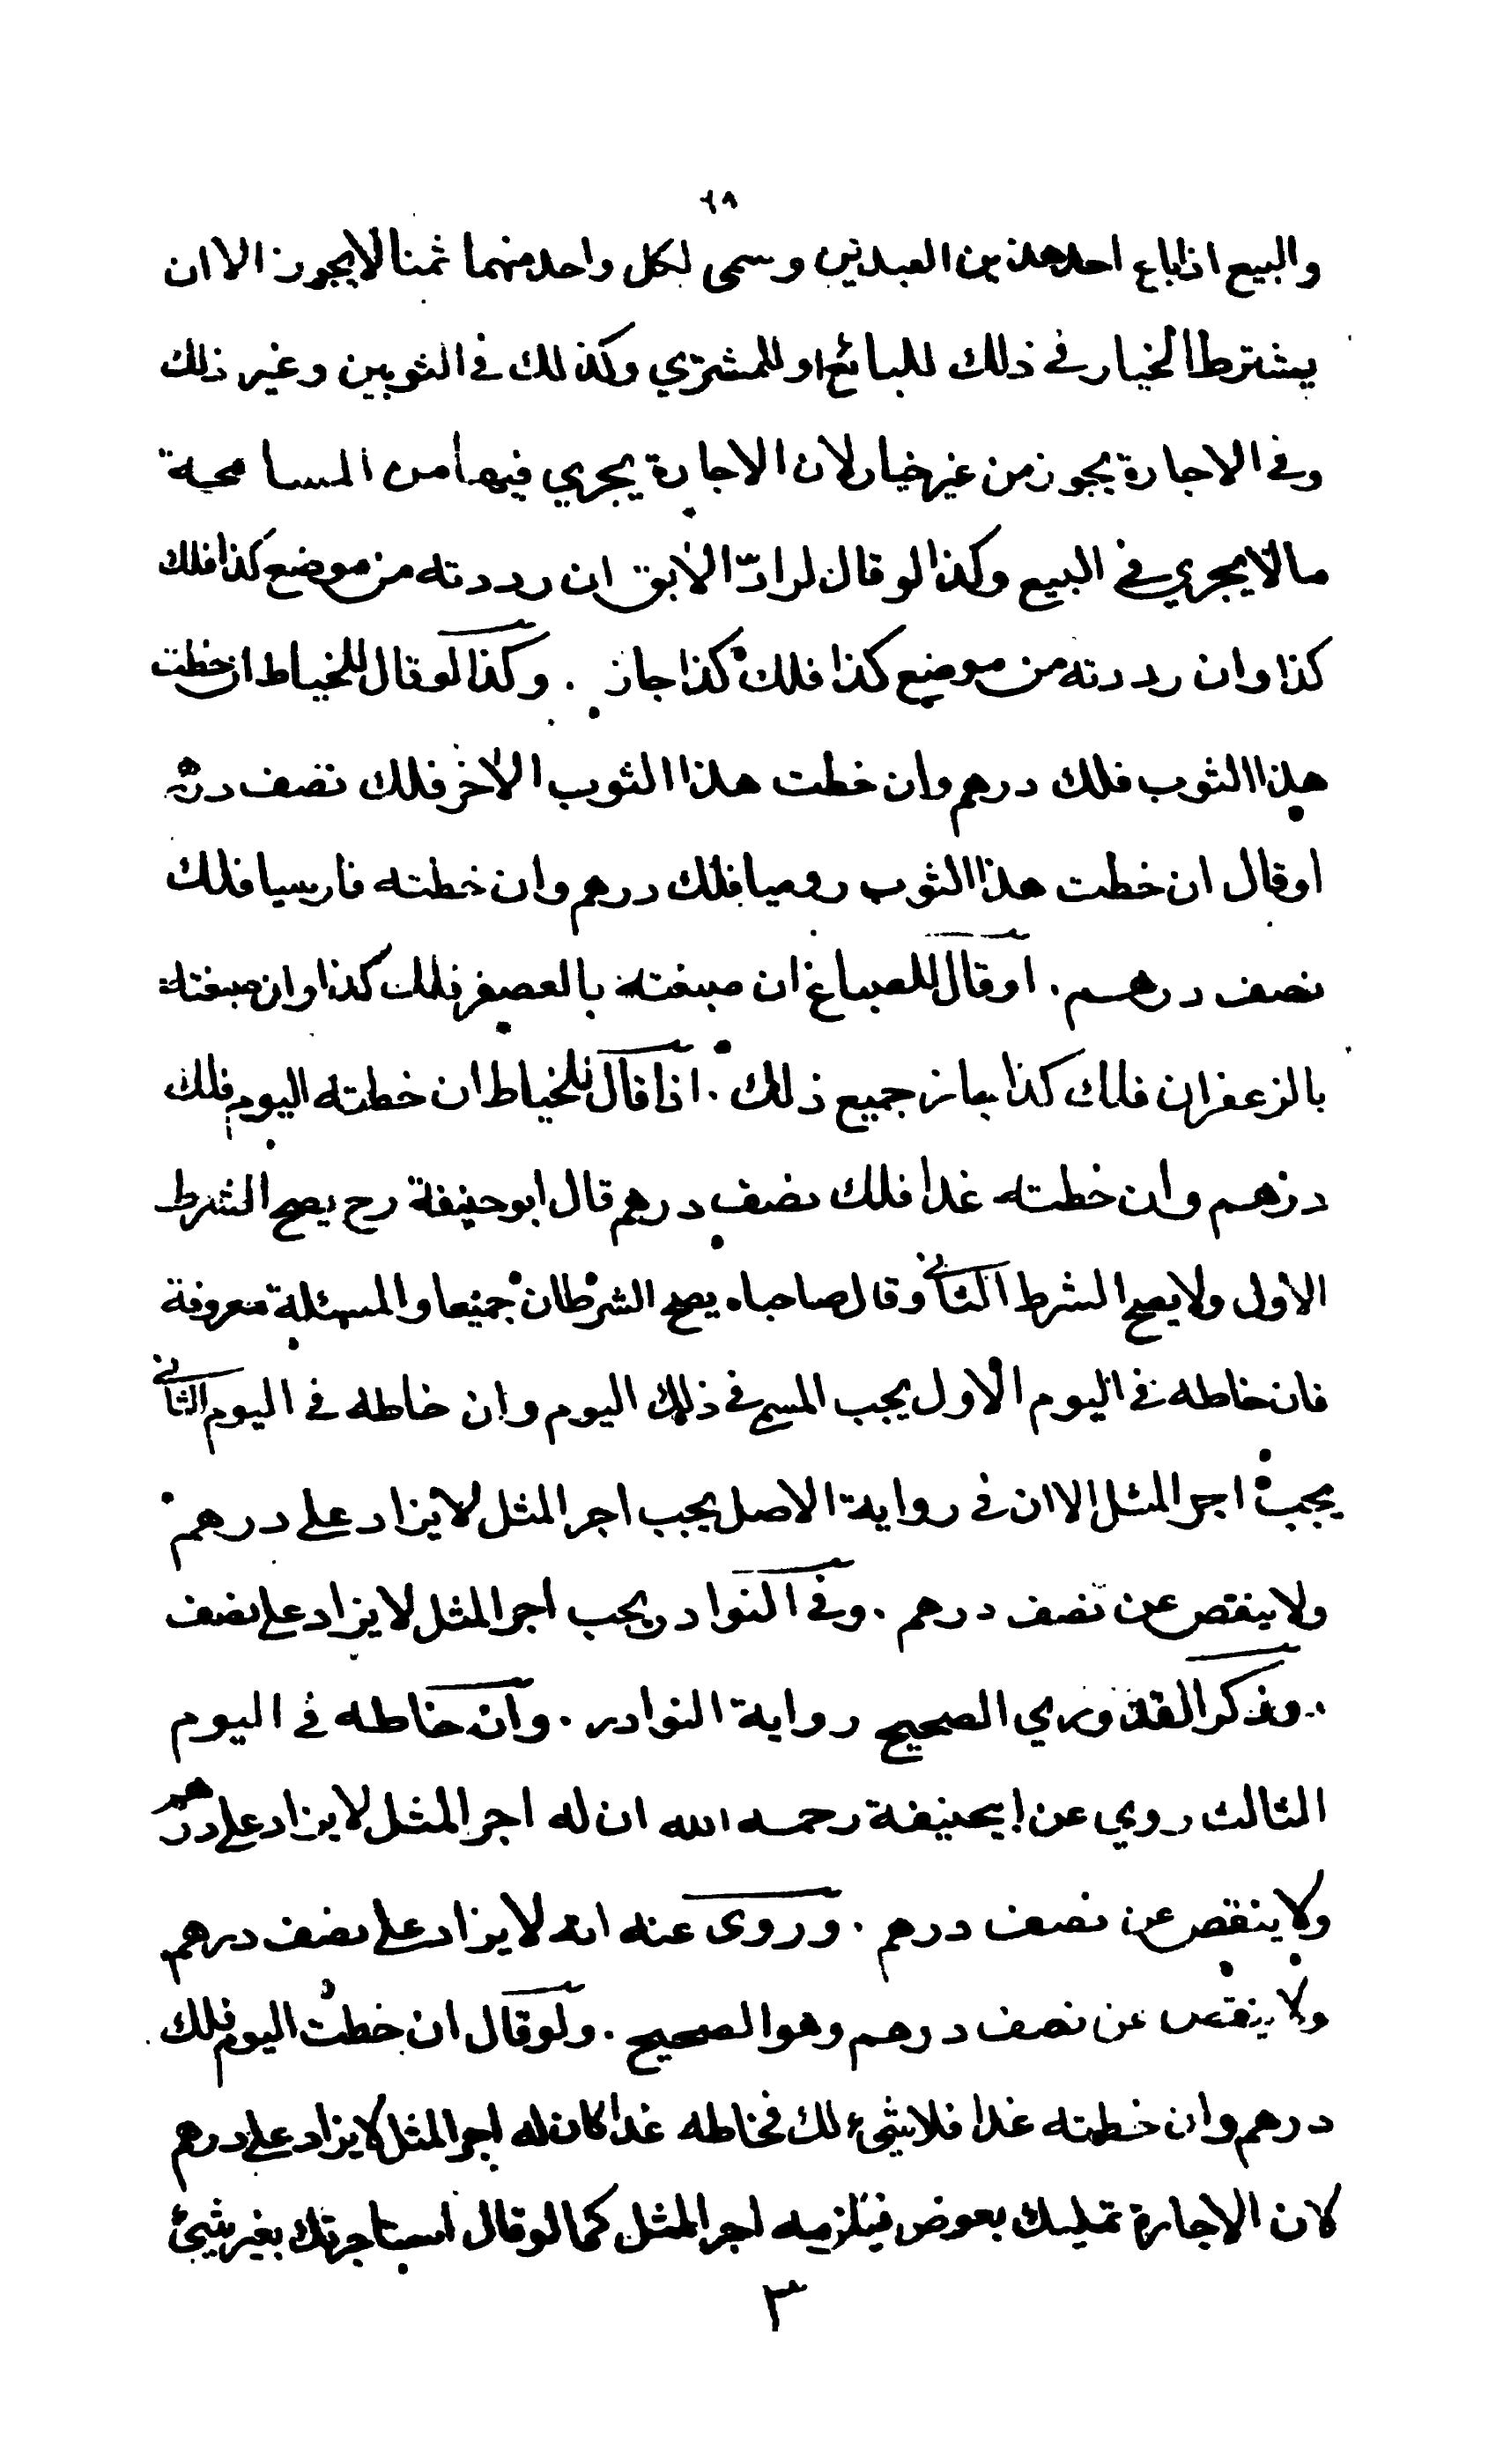 ٦٨
والبيع اذا باع احد هذين العبدين وسمى لكل واحد منهما ثمنا لا يجوز الا ان
يشترط الخيار في ذلك للبائع او للمشتري وكذلك في الثوبين وغير ذلك
وفي الاجارة يجوز من غير خيار لان الاجارة يجري فيها من المسامحة
ما لا يجري في البيع وكذا لو قال لرادّ الآبق ان رددته من موضع كذا فلك
كذا وان رددته من موضع كذا فلك كذا جاز . وكذا لو قال للخياط ان خطت
هذا الثوب فلك درهم وان خطت هذا الثوب الآخر فلك نصف درهم
او قال ان خطت هذا الثوب روميا فلك درهم وان خطته فارسيا فلك
نصف درهم . او قال للصباغ ان صبغته بالعصفر فلك كذا وان صبغته
بالزعفران فلك كذا جاز جميع ذلك . اذا قال للخياط ان خطته اليوم فلك
درهم وان خطته غدا فلك نصف درهم قال ابو حنيفة رح يصح الشرط
الاول ولا يصح الشرط الثاني وقال صاحباه يصح الشرطان جميعا والمسئلة معروفة
فان خاطه في اليوم الاول يجب المسمى في ذلك اليوم وان خاطه في اليوم الثاني
يجب اجر المثل الا ان في رواية الاصل يجب اجر المثل لا يزاد على درهم
ولا ينقص عن نصف درهم . وفي النوادر يجب اجر المثل لا يزاد على نصف
. وذكر القدوري الصحيح رواية النوادر . وان خاطه في اليوم
الثالث روي عن ابيحنيفة رحمه الله ان له اجر المثل لا يزاد على درهم
ولا ينقص عن نصف درهم . وروى عنه انه لا يزاد على نصف درهم
ولا ينقص عن نصف درهم وهو الصحيح . ولو قال ان خطت اليوم فلك
درهم وان خطته غدا فلا شيء لك فخاطه غدا كان له اجر المثل لا يزاد على درهم
لان الاجارة تمليك بعوض فيلزمه اجر المثل كما لو قال استاجرتك بغير شيئ
٣